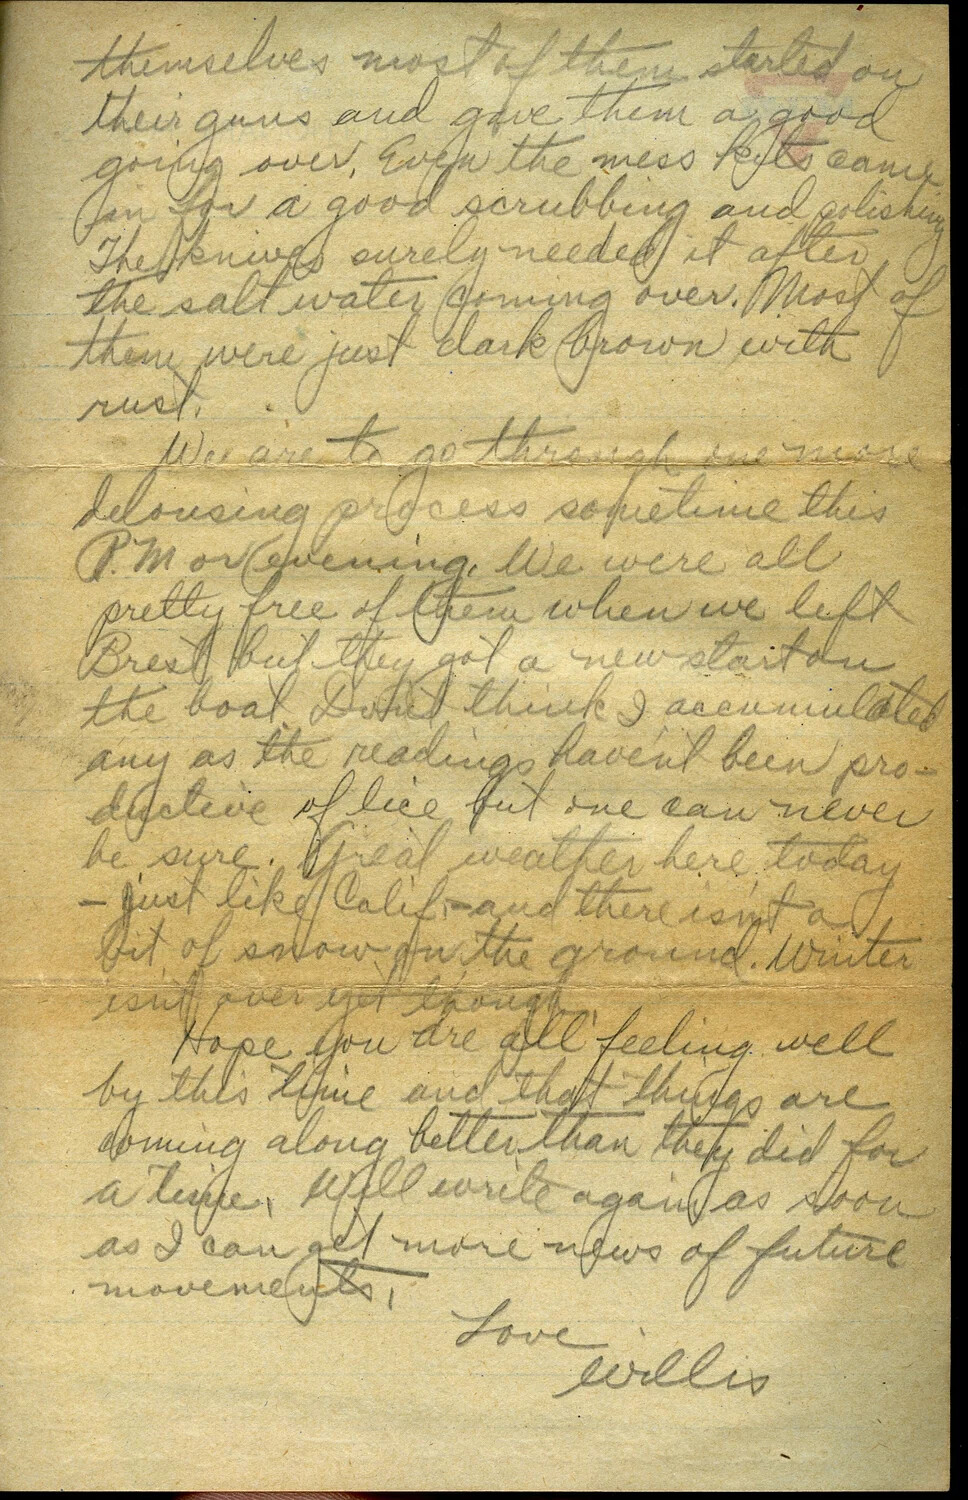 themselves most of them started on
their guns and gave them a good
going over. Even the mess kits came
in for a good scrubbing and polishing
The knives surely needed it after
the salt water coming over. Most of
them were just dark brown with
rust.
We are to go through one more
delousing process sometime this
P.M or evening. We were all
pretty free of them when we left
Brest but they got a new start on
the boat. Don't think I accumulated
any as the readings haven't been pro-
ductive of lice but one can never
be sure. Great weather here today
- just like Calif. - and there isn't a
bit of snow on the ground. Winter
isn't over yet though.
Hope you are all feeling well
by this time and that things are
coming along better than they did for
a time. Will write again as soon
as I can get more news of future
movements.
Love
Willis